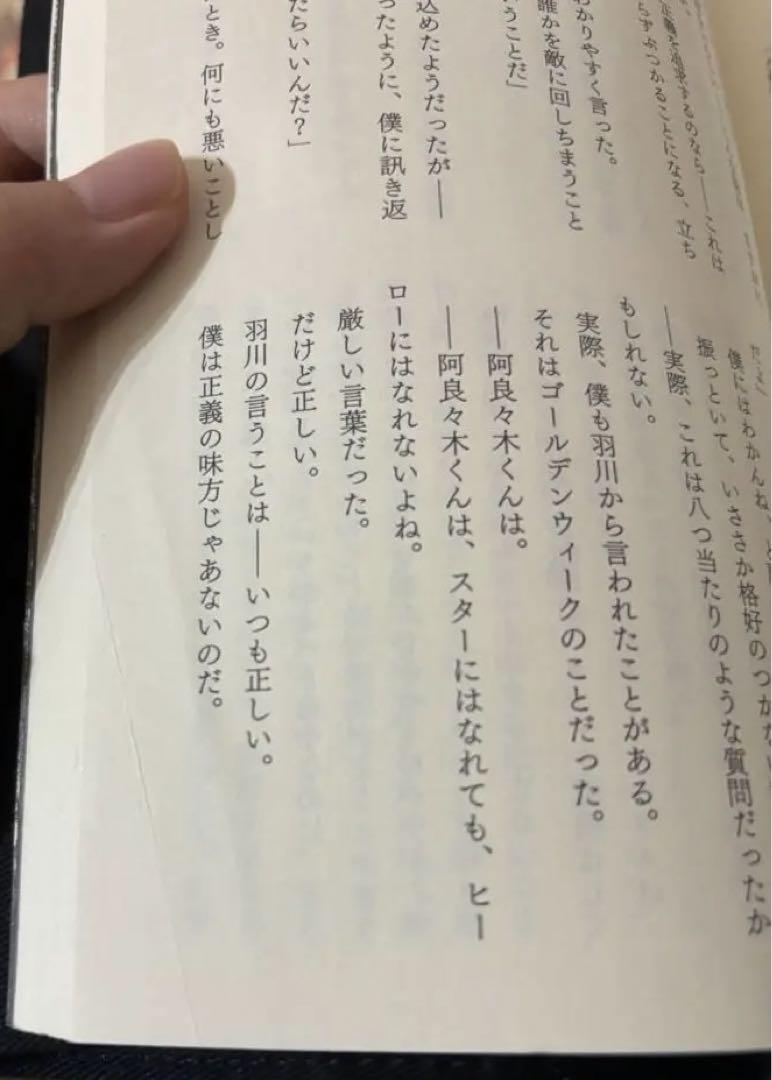 正義を追求するのなら――これは
らずぶつかることになる、立ち
わかりやすく言った。
誰かを敵に回しちまうこと
うことだ」
込めたようだったが――
ったように、僕に訊き返
たらいいんだ？」
とき。何にも悪いことし
僕にはわかんね
振っといて、いささか格好のつかない
――実際、これは八つ当たりのような質問だったか
もしれない。
実際、僕も羽川から言われたことがある。
それはゴールデンウィークのことだった。
――阿良々木くんは。
――阿良々木くんは、スターにはなれても、ヒー
ローにはなれないよね。
厳しい言葉だった。
だけど正しい。
羽川の言うことは――いつも正しい。
僕は正義の味方じゃあないのだ。